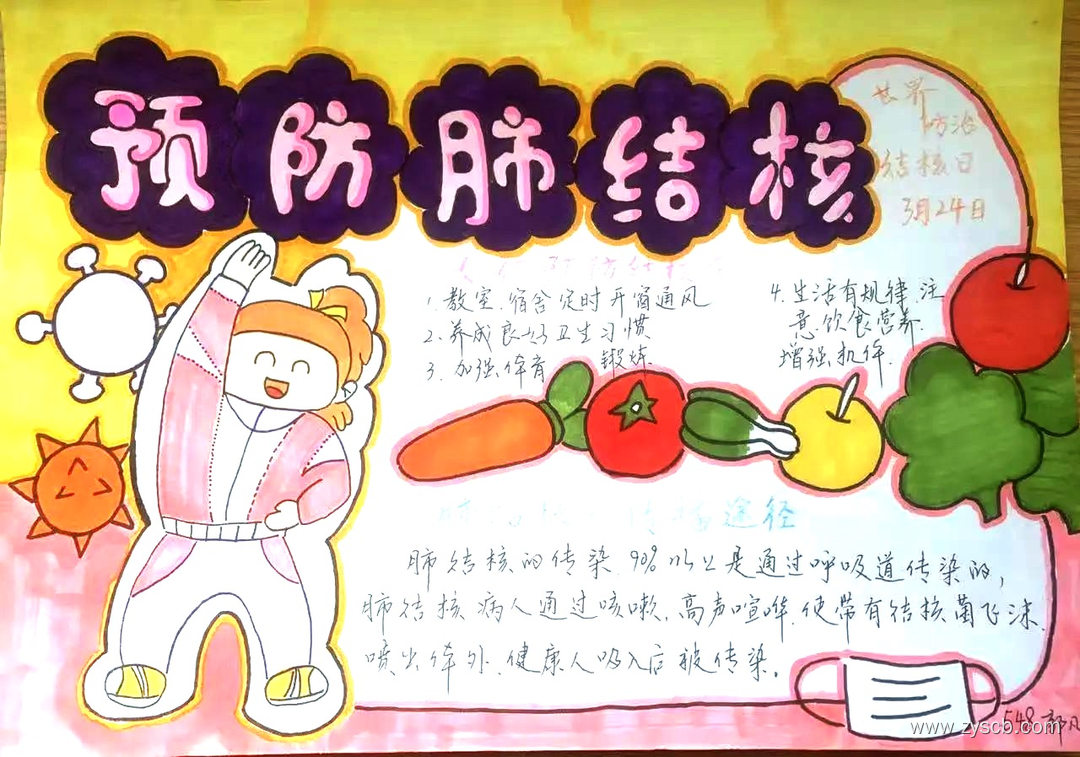 预防肺结核
世界
防治
结核日
3月24日
预防结核
1.教室.宿舍定时开窗通风
2.养成良好卫生习惯
3.加强体育 锻炼
4.生活有规律.注
意饮食营养.
增强机体.
传播途径
肺结核的传染.90%以上是通过呼吸道传染的,
肺结核病人通过咳嗽.高声喧哗.使带有结核菌飞沫.
喷出体外.健康人吸入后被传染。
548
www.zyscb.com